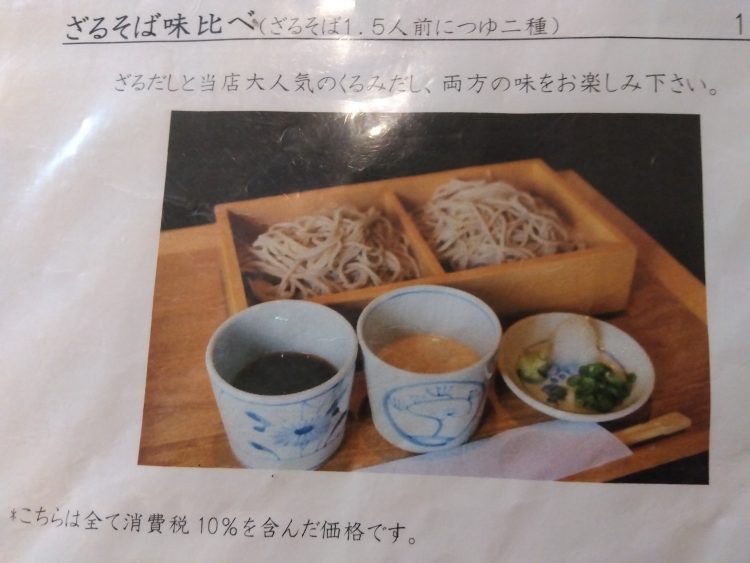 ざるそば味比べ(ざるそば1.5人前につゆ二種) 1
ざるだしと当店大人気のくるみだし、両方の味をお楽しみ下さい。
*こちらは全て消費税10%を含んだ価格です。